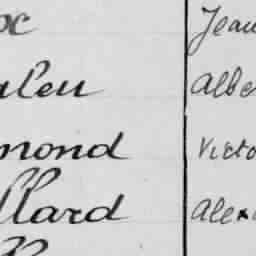 oc Jean
aleu Albe
mond Victo
llard Alex